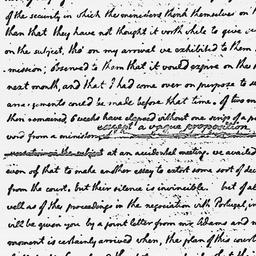 of the security in which the merchants think themselves on
than that they have not thought it worth while to give
on the subject, tho' on my arrival we exhibited to them
mission; observed to them that it would expire on the
next month, and that I had come over on purpose to
arrangements could be made before that time, of two mo
then remained, 6 weeks have elapsed without one scrip of a p
except a vague proposition
word from a minister
at an accidental meeting. we availed
sion of that to make another essay to extort some sort of dec
from the court, but their silence is invincible. but of al
well as of the proceedings in the negociation with Portugal, in
will be given you by a joint letter from mr. Adams and m
moment is certainly arrived when, the plan of this court